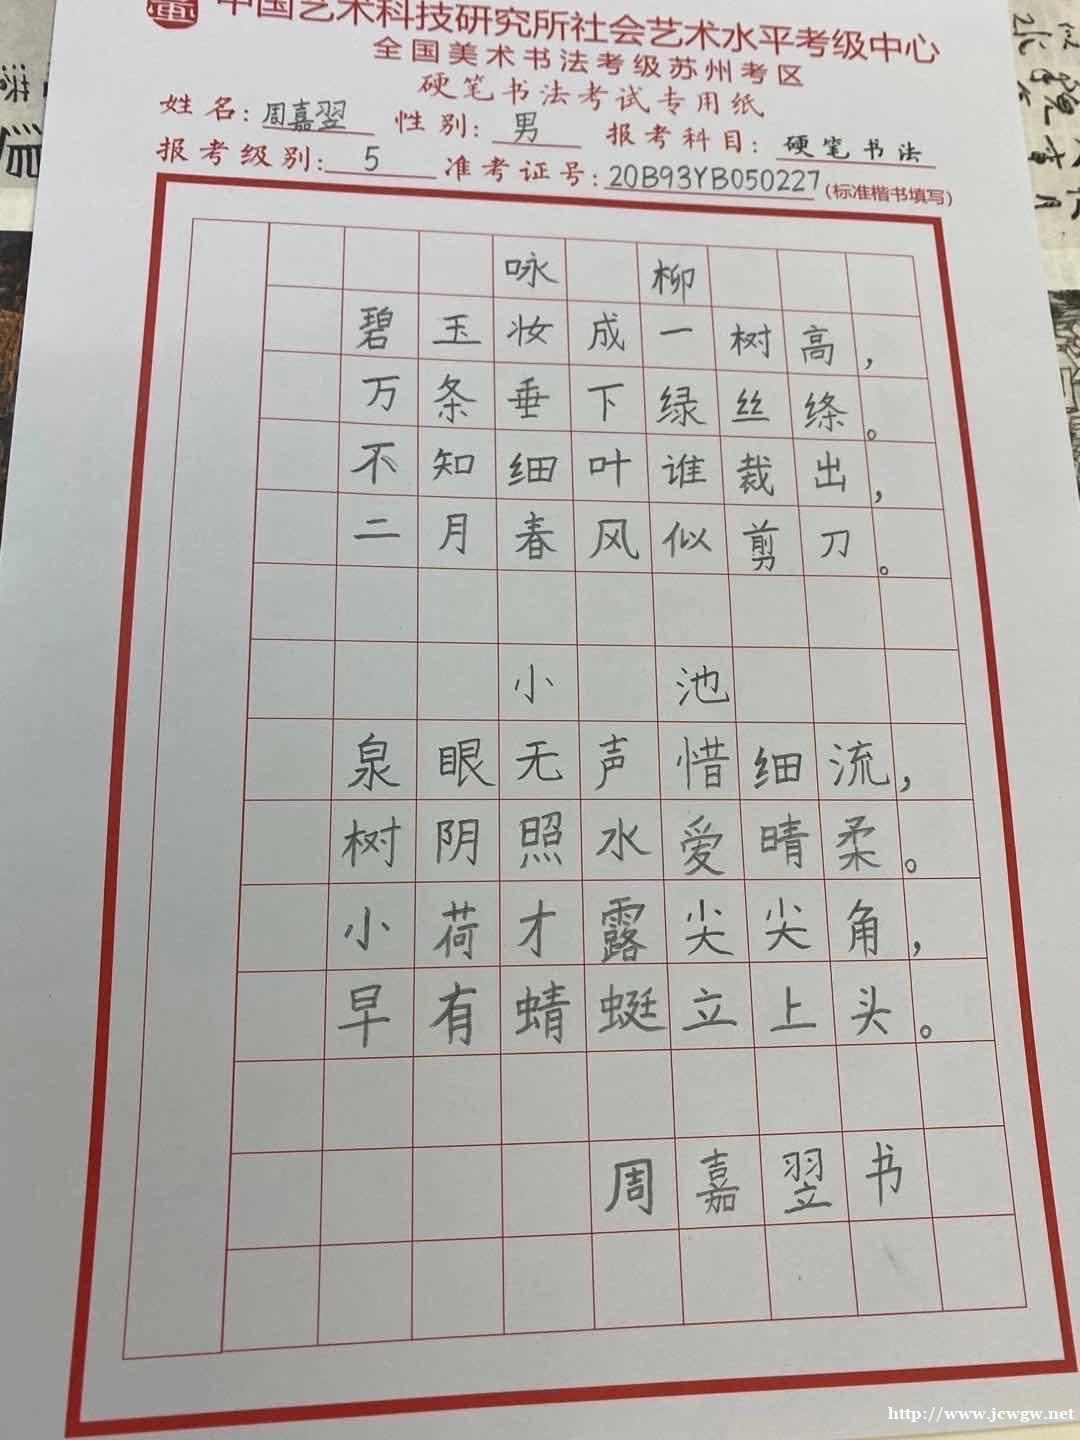 中国艺术科技研究所社会艺术水平考级中心
全国美术书法考级苏州考区
硬笔书法考试专用纸
姓名:周嘉翌 性别:男 报考科目:硬笔书法
报考级别:5 准考证号:20B93YB050227(标准楷书填写)
咏柳
碧玉妆成一树高，
万条垂下绿丝绦。
不知细叶谁裁出，
二月春风似剪刀。
小池
泉眼无声惜细流，
树阴照水爱晴柔。
小荷才露尖尖角，
早有蜻蜓立上头。
周嘉翌书
http://www.jcwgw.net